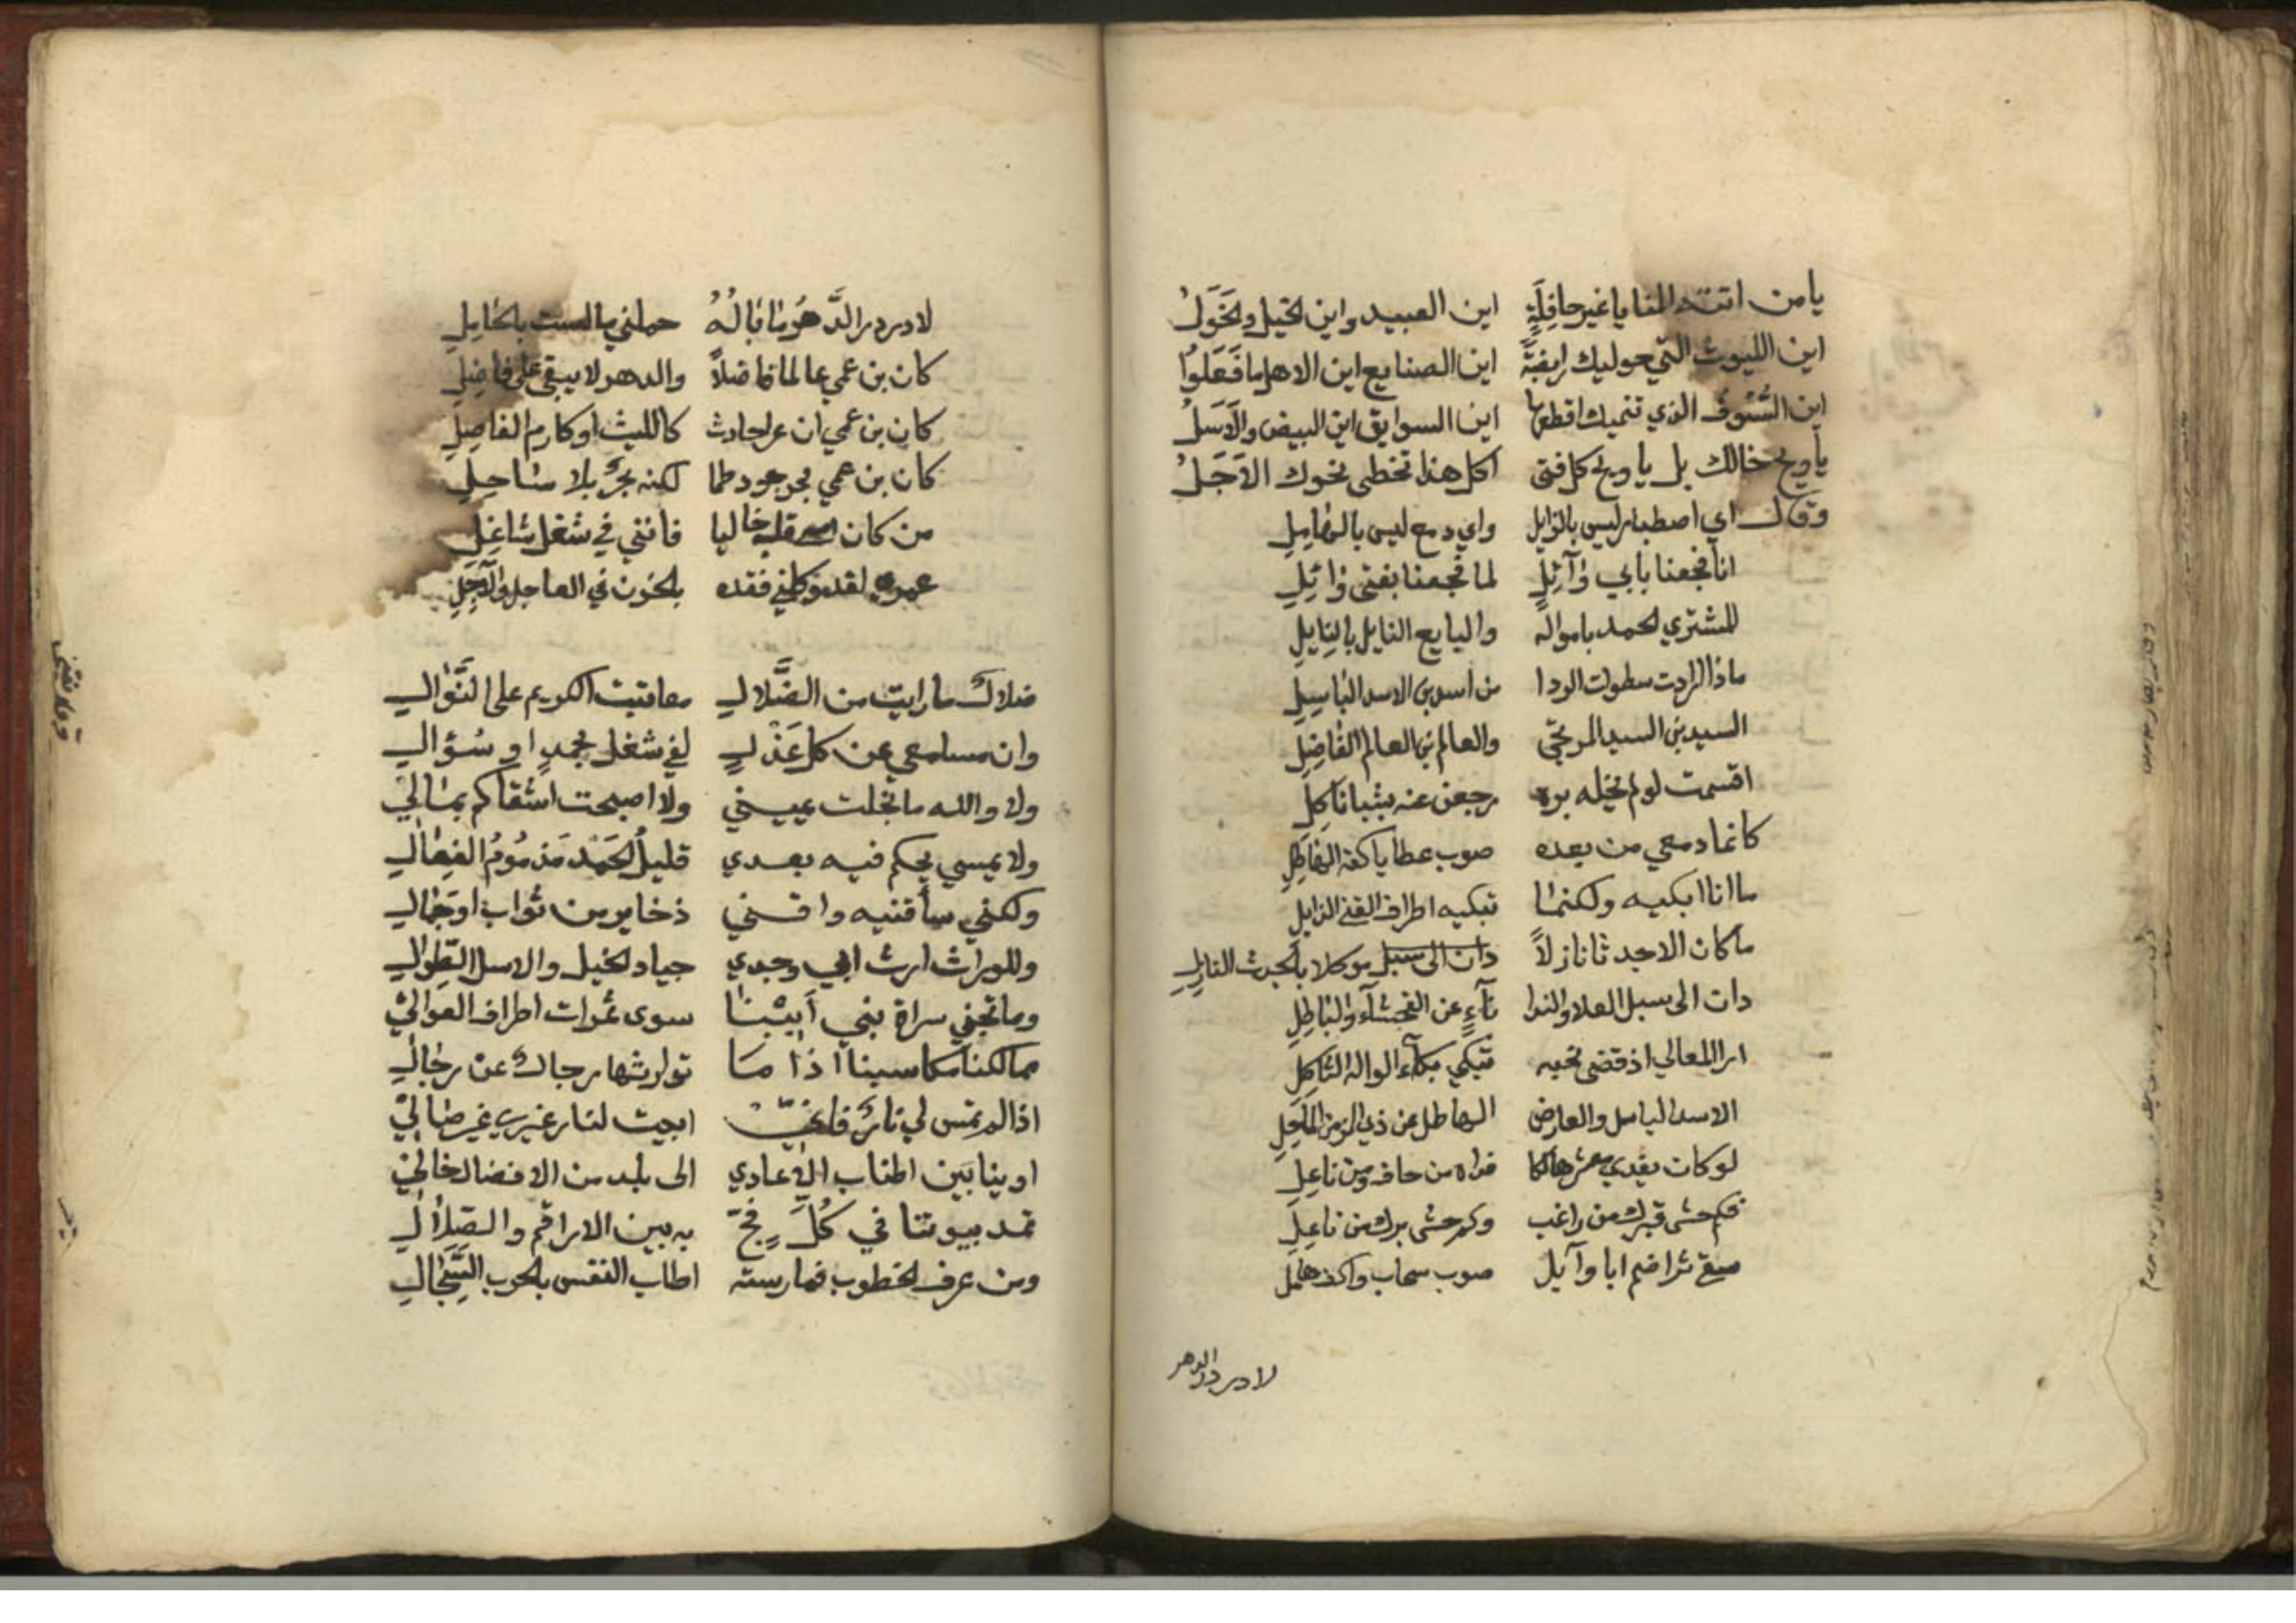 يا من اتته المنايا غير حافِلَةٍ اين العبيد واين الخيل والخَوَلُ
اين الليوث التي حوليك رابضةً اين الصنايع اين الاهل ما فَعَلوُا
اين السُّيُوفُ الذي تنميك اقطعها اين السوابق اين البيض والاَسَلُ
يا ويح خالك بل يا ويح كل فتى اكل هذا تخطى نحوك الاَجَلُ
وقال اي اصطبار ليس بالزايل واي دمع ليس بالهَامِلِ
انا فجعنا بابي وَآئِلٍ لما فجعنا بفتى وَائِلِ
المشتري الحمد بامواله والبايع النايل بالنايلِ
ماذا ارادت سطوات الردا من اسد بن الاسد البَاسِلِ
السيد بن السيد المرتجى والعالم بن العالم الفَاضِلِ
اقسمت لو لم يخله بره رجعن عنه بشبا ثَاكِلِ
كانما دمعي من بعده صوب عطايا كفه الهَاطِلِ
ما انا ابكيه ولكنما تبكيه اطراف القنا الذابلِ
ما كان الا جدثا نازلاً دان الى سبل موكلا بالجدث النازلِ
دان الى سبل العلا والندا نآءٍ عن الفحشآء والبَاطِلِ
ارا المعالي اذ قضى نحبه تبكي بكآء الواله الثَاكِلِ
الاسد الباسل والعارض الهاطل عن ذي الزمن المَاحِلِ
لو كان يفدي معشر هالكا فداه من حاف ومن نَاعِلِ
فكم حشى قبرك من راغب وكم حشى تربك من نَاعِلِ
سقى ثرا ضم ابا وآيل صوب سحاب واكف هَامِلِ
لا در در الدهر
لا در در الدَّهْرِ مَا بَالُهُ حملني ما لست بالحَامِلِ
كان بن عمي عالما فاضلاً والدهر لا يبقي على فَاضِلِ
كان بن عمي ان عرا حادث كالليث او كارم الفاصِلِ
كان بن عمي بحر جود طما لكنه بحرٌ بلا سَاحِلِ
من كان قلبه خاليا فانني في شغل شَاغِلِ
عمري لقد وكلني فقده بالحزن في العاجل والآجِلِ
ضلالٌ ما رايت من الضَّلالِ معاتبة الكريم على النَّوَالِ
وان مسامعي عن كل عَذْلٍ لفي شغل بحمدٍ او سُؤالِ
ولا والله ما بخلت يميني ولا اصبحت اشقاكم بمَالِي
ولا يمسي يحكم فيه بعدي قليلُ الحَمْدِ مَذمُومُ الفِعَالِ
ولكني سأفنيه واقني ذخاير من ثواب او جَمَالِ
وللوراث ارث ابي وجدي جياد الخيل والاسل الطِوَالِ
وما تجني سراة بني أَبِيْنَا سوى ثمرات اطراف العوالي
ممالكنا مكاسبنا اذا مَا توارثها رجالٌ عن رجَالِ
اذا لم تمس لي نارٌ فاني ابيت لنار غيري غير صَالِي
اوينا بَين اطناب الاعادي الى بلد من الافضال خَالِي
تمد بيوتنا في كُلِّ فَجٍّ به بين الاراقم والصِلاَلِ
ومن عرف الخطوب فمارسته اطاب النفس بالحرب السِّجَالِ